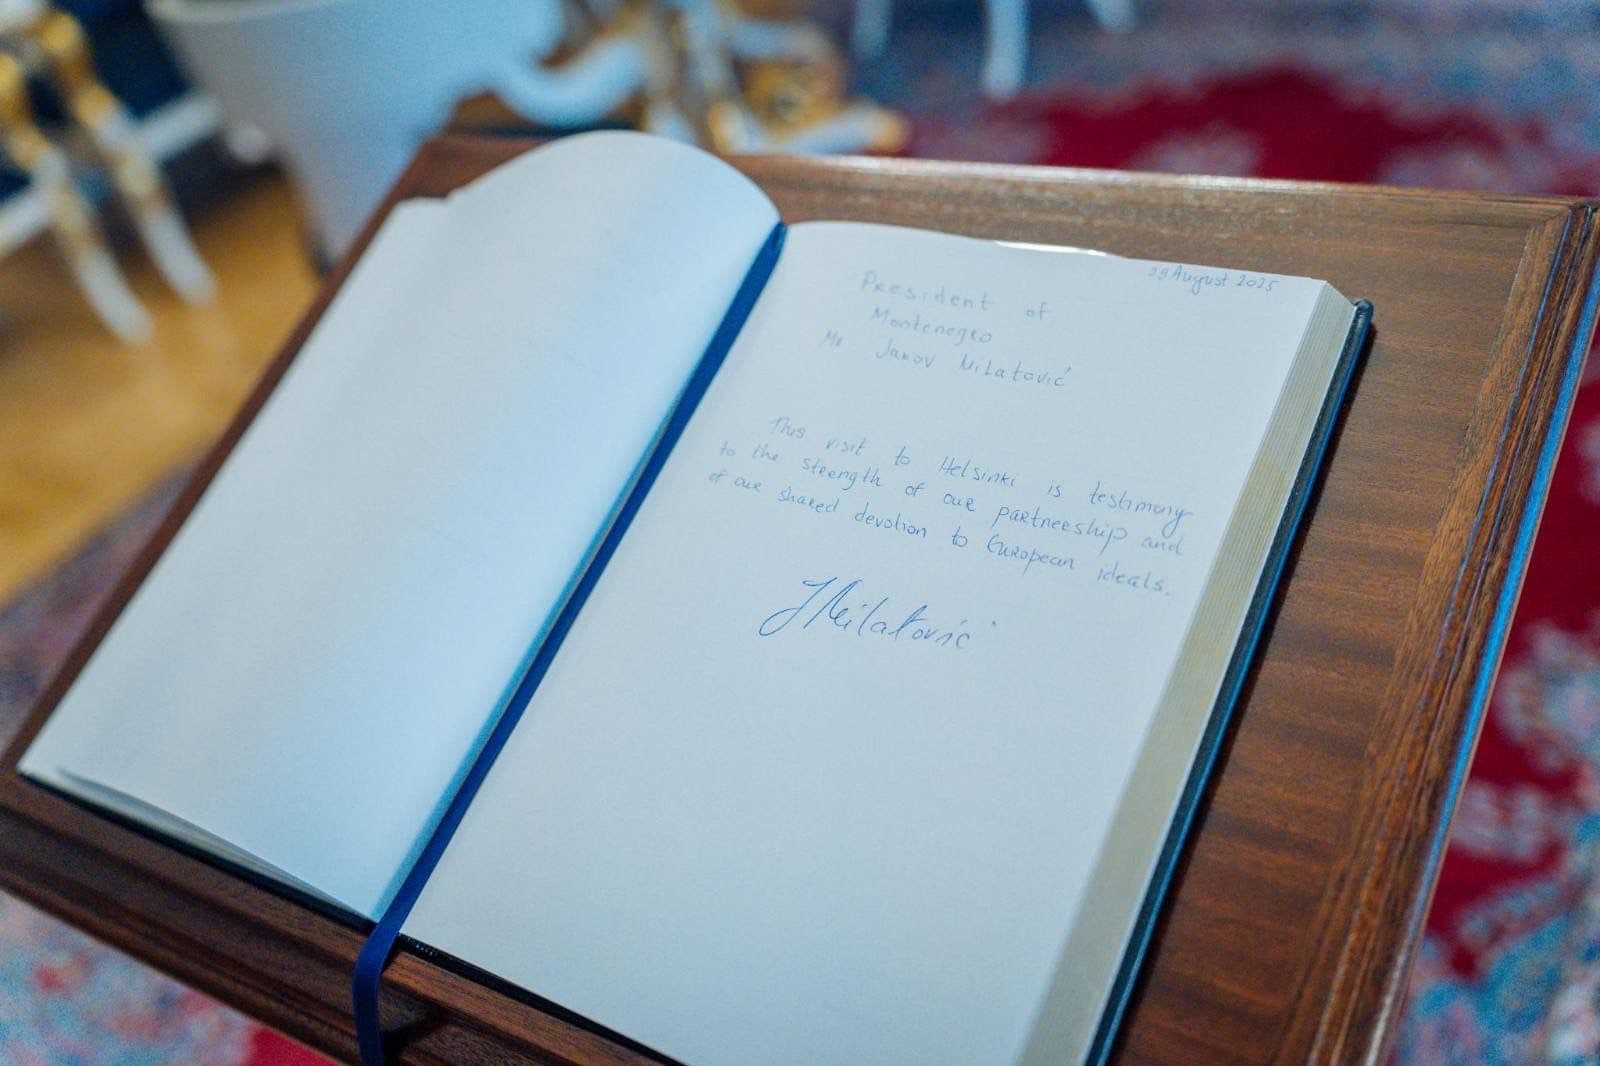 29 August 2025
President of
Montenegro
Mr Jakov Milatović
This visit to Helsinki is testimony
to the strength of our partnership and
of our shared devotion to European ideals.
JMilatović